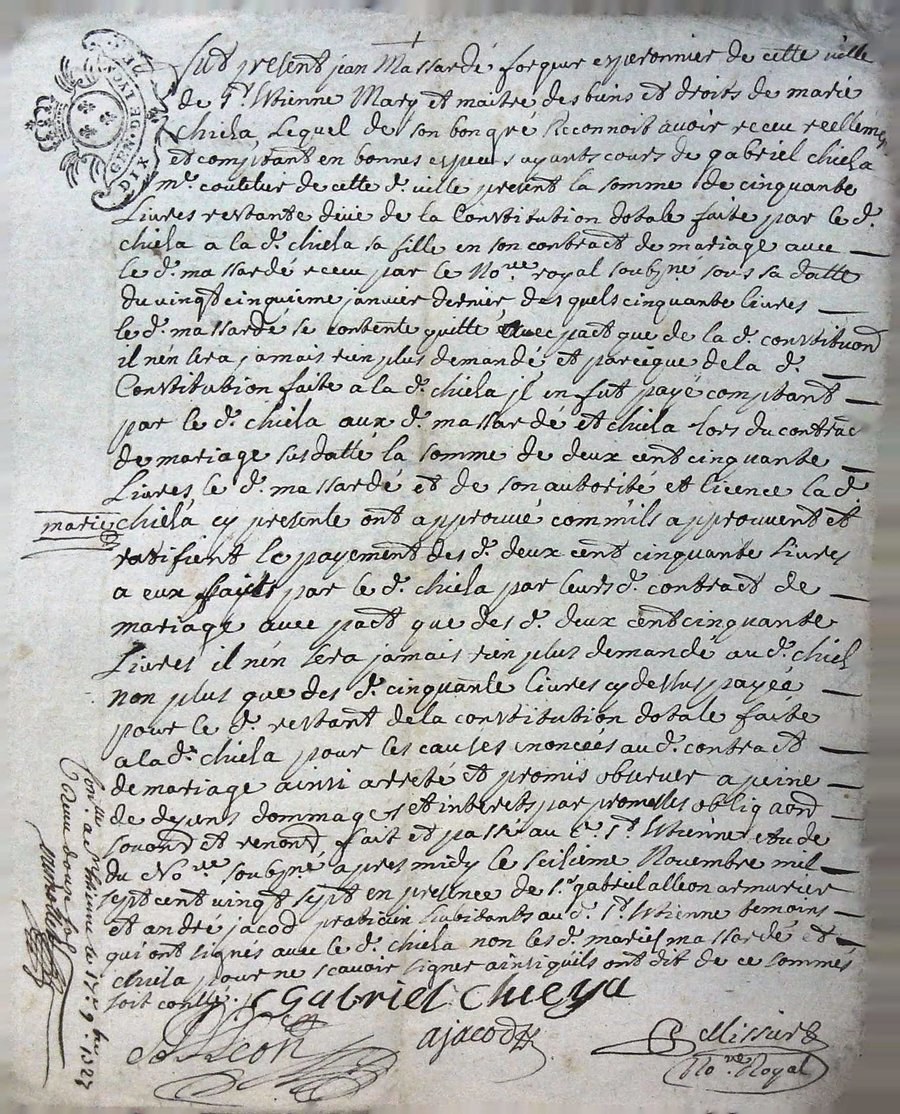 GEN. DE LYON
DIX DEN
fut present jean Massardé forgeur eyperonnier de cette ville
de St. Etienne Mary et maitre des biens et droits de marie
chiela Lequel de son bon gré Reconnoit avoir receu reellemt
et comptant en bonnes especes ayants cours de gabriel chiela
me. coutelier de cette d. ville present la somme de cinquante
Livres restante deüe de la Constitution dotale faite par le d.
chiela a la d. chiela sa fille en son contract de mariage avec
le d. massardé receu par le Nore. royal soubzné sous sa datte
du vingt cinquieme janvier dernier, des quels cinquante livres
le d. massardé se contente quitte avec pact que de la d. constituond
il n'en sera jamais rien plus demandé et parceque de la d.
Constitution faite a la d. chiela il en fut payé comptant
par le d. chiela aux d. massardé et chiela lors du contrac
de mariage susdatté la somme de deux cent cinquante
Livres, le d. massardé et de son autorité et licence la d.
marie
chiela cy presente ont approuvé comm'ils approuvent et
ratifient le payement des d. deux cent cinquante livres
a eux faits par le d. chiela par leurs d. contract de
mariage avec pact que des d. deux cent cinquante
Livres il n'en sera jamais rien plus demandé au d. chiel
non plus que des d. cinquante livres cy dessus payée
pour le d. restant de la constitution dotale faite
a la d. chiela pour les causes enoncées au d. contract
de mariage ainsi arreté et promis observer a peine
de depens dommages et interets par promesses obligaond
soumond et renond, fait et passé au d. St. Etienne etude
du Nore. soubzné apres midy le seisieme Novembre mil
sept cent vingt sept en presence de Sr. gabriel alleon armurier
et andré jacod praticien habitants au d. St. Etienne temoins
qui ont signés avec le d. chiela non les d. mariés massardé et
chiela pour ne scavoir signer ainsi quils ont dit de ce sommés
soit conllé.
Gabriel Chieya
alleon
ajacod
Missire
Nore. Royal
Conlle. a St. Etienne le 17e 9bre 1727
Receu douze sols